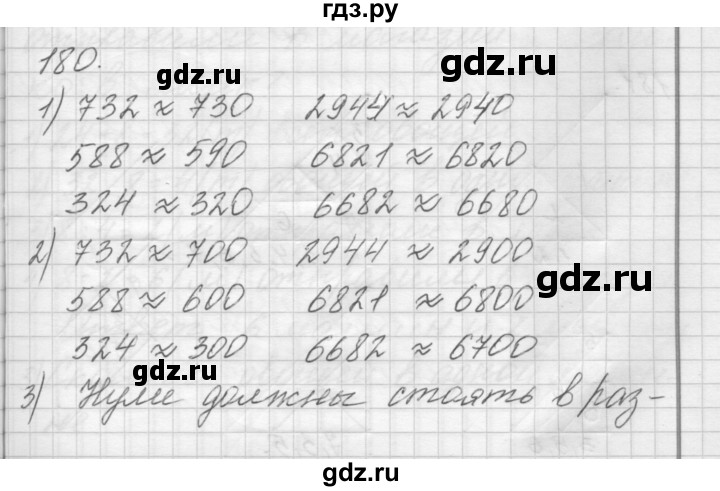 гдз.ру
180.
gdz.ru
gdz.ru
1) 732 ≈ 730 2944 ≈ 2940
588 ≈ 590 6821 ≈ 6820
324 ≈ 320 6682 ≈ 6680
2) 732 ≈ 700 2944 ≈ 2900
gdz.ru
588 ≈ 600 6821 ≈ 6800
324 ≈ 300 6682 ≈ 6700
gdz.ru
3) Нули должны стоять в раз-
gdz.ru